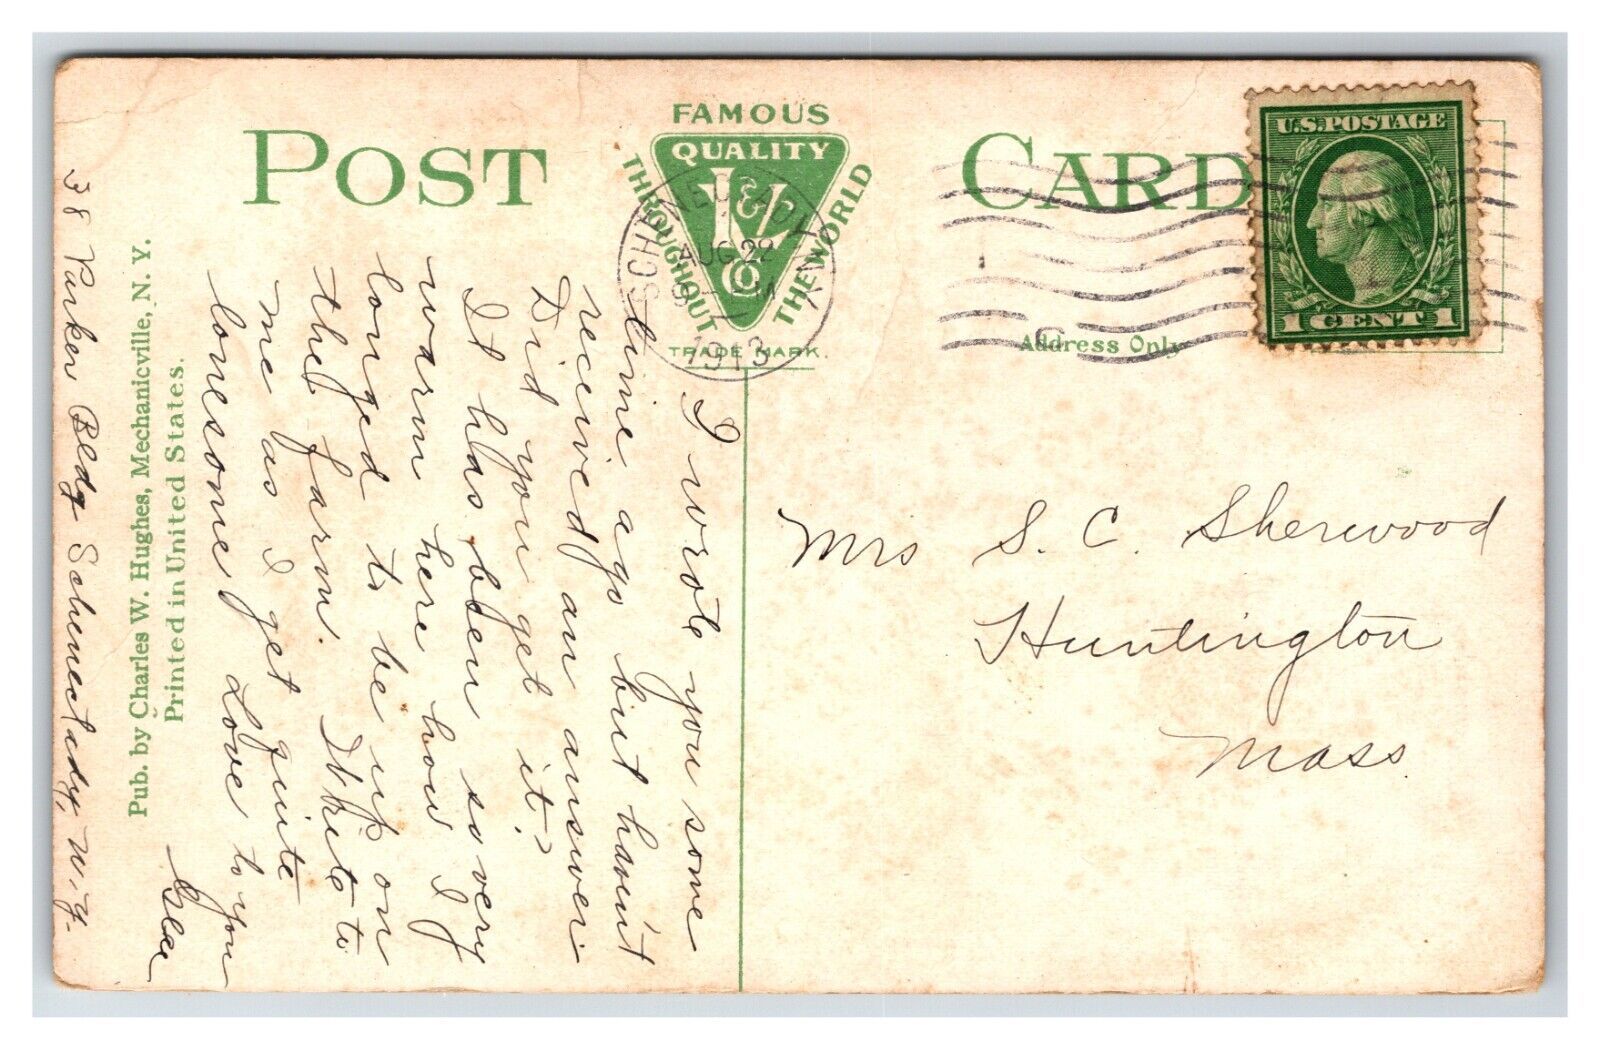 POST CARD
FAMOUS
QUALITY
THROUGHOUT THE WORLD
& Co
TRADE MARK.
SCHENECTADY, N.Y.
AUG 29
1913
U.S. POSTAGE
1 CENT 1
Address Only
I wrote you some
time ago but havin't
received an answer
Did you get it?
It has been so very
warm here how I
longed to be up on
the farm. Write to
me as I get quite
lonesome Love to you
38 Parker Bldg Schenectady, N.Y.
Pub. by Charles W. Hughes, Mechanicville, N. Y.
Printed in United States.
Mrs S. C. Sherwood
Huntington
Mass.